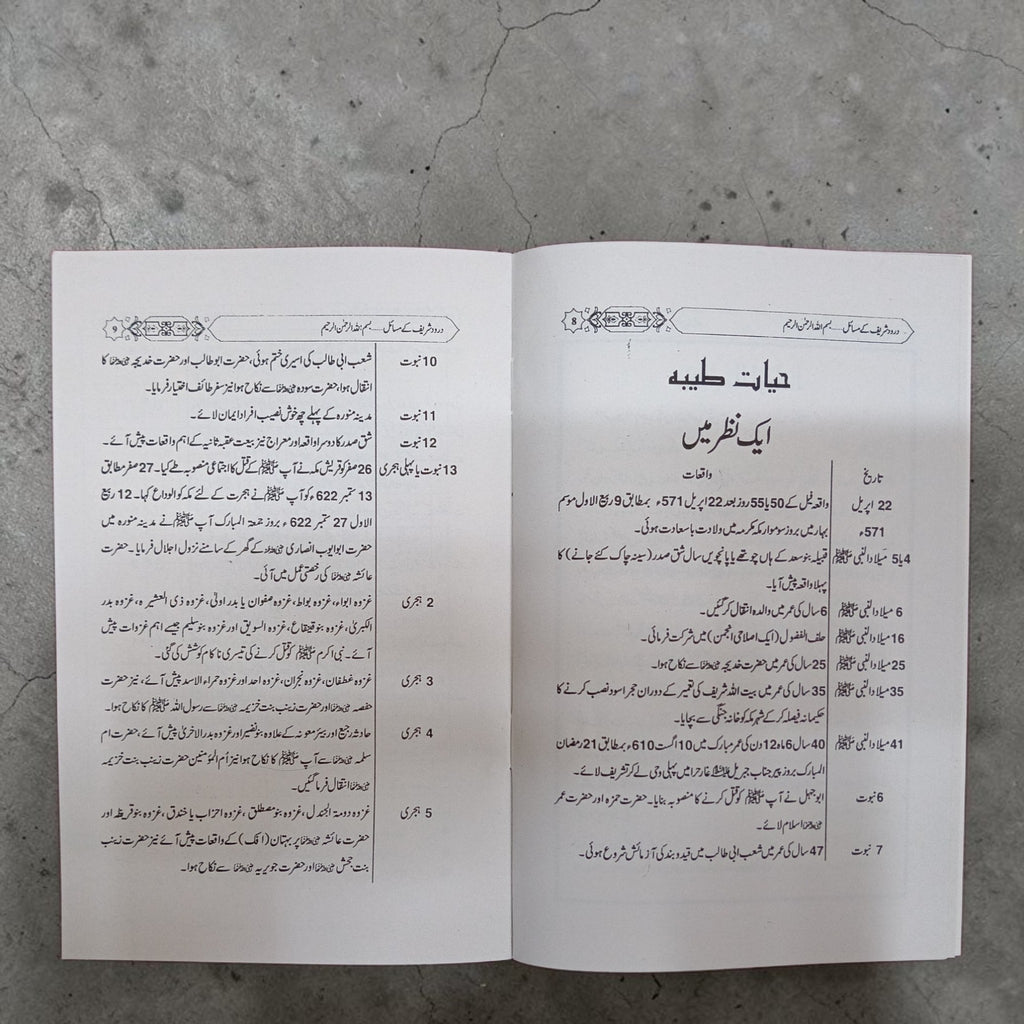 8 درود شریف کے مسائل.....بسم اللہ الرحمٰن الرحیم
حیات طیبہ
ایک نظر میں
تاریخ واقعات
22 اپریل واقعہ فیل کے 50 یا 55 روز بعد 22 اپریل 571ء بمطابق 9 ربیع الاول موسم
571ء بہار میں بروز سوموار مکہ مکرمہ میں ولادت با سعادت ہوئی۔
4 یا 5 میلاد النبی ﷺ قبیلہ بنو سعد کے ہاں چوتھے یا پانچویں سال شق صدر (سینہ چاک کئے جانے) کا
پہلا واقعہ پیش آیا۔
6 میلاد النبی ﷺ 6 سال کی عمر میں والدہ انتقال کر گئیں۔
16 میلاد النبی ﷺ حلف الفضول (ایک اصلاحی انجمن) میں شرکت فرمائی۔
25 میلاد النبی ﷺ 25 سال کی عمر میں حضرت خدیجہ رضی اللہ عنہا سے نکاح ہوا۔
35 میلاد النبی ﷺ 35 سال کی عمر میں بیت اللہ شریف کی تعمیر کے دوران حجر اسود نصب کرنے کا
حکیمانہ فیصلہ کر کے شہر مکہ کو خانہ جنگی سے بچایا۔
41 میلاد النبی ﷺ 40 سال 6 ماہ 12 دن کی عمر مبارک میں 10 اگست 610ء بمطابق 21 رمضان
المبارک بروز پیر جناب جبریل علیہ السلام غار حرا میں پہلی وحی لے کر تشریف لائے۔
6 نبوت ابو جہل نے آپ ﷺ کو قتل کرنے کا منصوبہ بنایا۔ حضرت حمزہ اور حضرت عمر
رضی اللہ عنہما اسلام لائے۔
7 نبوت 47 سال کی عمر میں شعب ابی طالب میں قید و بند کی آزمائش شروع ہوئی۔
9 درود شریف کے مسائل.....بسم اللہ الرحمٰن الرحیم
10 نبوت شعب ابی طالب کی اسیری ختم ہوئی، حضرت ابو طالب اور حضرت خدیجہ رضی اللہ عنہا کا
انتقال ہوا، حضرت سودہ رضی اللہ عنہا سے نکاح ہوا نیز سفر طائف اختیار فرمایا۔
11 نبوت مدینہ منورہ کے پہلے چھ خوش نصیب افراد ایمان لائے۔
12 نبوت شق صدر کا دوسرا واقعہ اور معراج نیز بیعت عقبہ ثانیہ کے اہم واقعات پیش آئے۔
13 نبوت یا پہلی ہجری 26 صفر کو قریش مکہ نے آپ ﷺ کے قتل کا اجتماعی منصوبہ طے کیا۔ 27 صفر مطابق
13 ستمبر 622ء کو آپ ﷺ نے ہجرت کے لئے مکہ کو الوداع کہا۔ 12 ربیع
الاول 27 ستمبر 622ء بروز جمعۃ المبارک آپ ﷺ نے مدینہ منورہ میں
حضرت ابو ایوب انصاری رضی اللہ عنہ کے گھر کے سامنے نزول اجلال فرمایا۔ حضرت
عائشہ رضی اللہ عنہا کی رخصتی عمل میں آئی۔
2 ہجری غزوہ ابواء، غزوہ بواط، غزوہ صفوان یا بدر اولیٰ، غزوہ ذی العشیرہ، غزوہ بدر
الکبریٰ، غزوہ بنو قینقاع، غزوہ السویق اور غزوہ بنو سلیم جیسے اہم غزوات پیش
آئے۔ نبی اکرم ﷺ کو قتل کرنے کی تیسری ناکام کوشش کی گئی۔
3 ہجری غزوہ غطفان، غزوہ نجران، غزوہ احد اور غزوہ حمراء الاسد پیش آئے، نیز حضرت
حفصہ رضی اللہ عنہا اور حضرت زینب بنت خزیمہ رضی اللہ عنہا سے رسول اللہ ﷺ کا نکاح ہوا۔
4 ہجری حادثہ رجیع اور بیئر معونہ کے علاوہ بنو نضیر اور غزوہ بدر الاخریٰ پیش آئے، حضرت ام
سلمہ رضی اللہ عنہا سے آپ ﷺ کا نکاح ہوا نیز اُم المؤمنین حضرت زینب بنت خزیمہ
رضی اللہ عنہا انتقال فرما گئیں۔
5 ہجری غزوہ دومۃ الجندل، غزوہ بنو مصطلق، غزوہ احزاب یا خندق، غزوہ بنو قریظہ اور
حضرت عائشہ رضی اللہ عنہا پر بہتان (افک) کے واقعات پیش آئے نیز حضرت زینب
بنت جحش رضی اللہ عنہا اور حضرت جویریہ رضی اللہ عنہا سے نکاح ہوا۔